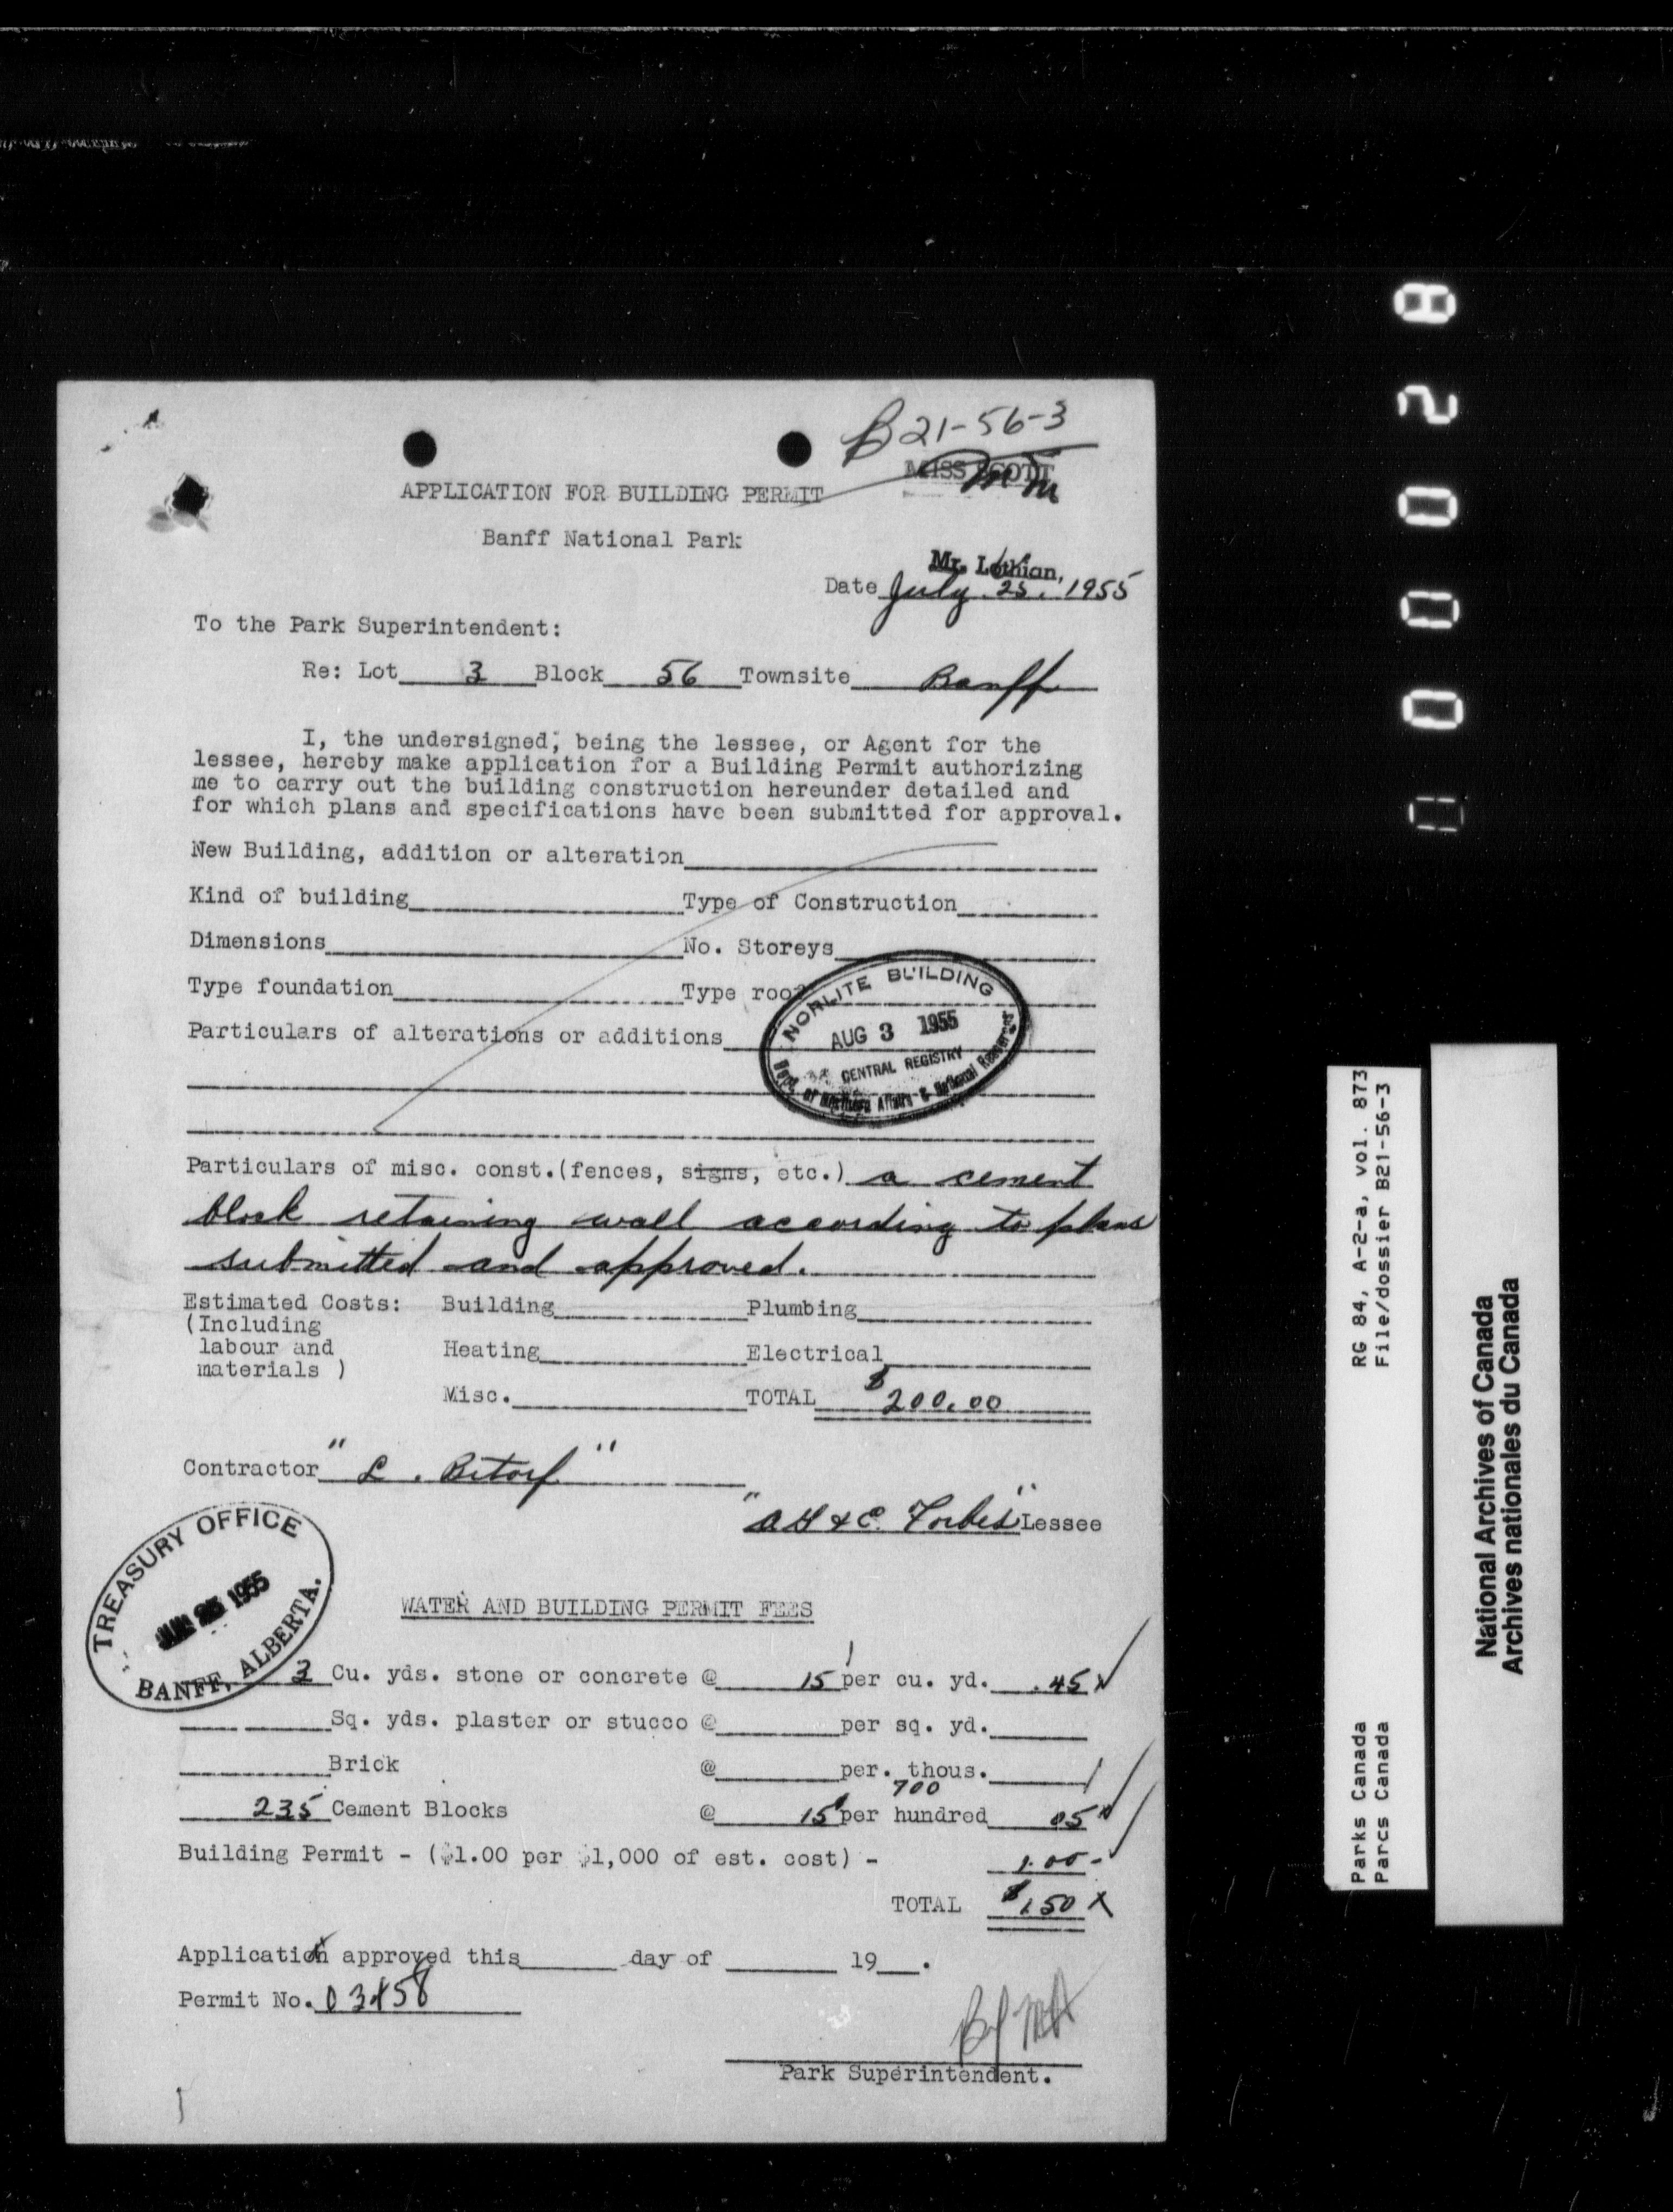 B21-56-3
MISS SCOTT
APPLICATION FOR BUILDING PERMIT
Banff National Park
Mr. Lothian,
Date July 25, 1955
To the Park Superintendent:
Re: Lot 3 Block 56 Townsite Banff
I, the undersigned, being the lessee, or Agent for the
lessee, hereby make application for a Building Permit authorizing
me to carry out the building construction hereunder detailed and
for which plans and specifications have been submitted for approval.
New Building, addition or alteration
Kind of building Type of Construction
Dimensions No. Storeys
Type foundation Type roof
Particulars of alterations or additions
NORLITE BUILDING
AUG 3 1955
CENTRAL REGISTRY
Dept. of Northern Affairs & National Resources
Particulars of misc. const.(fences, signs, etc.) a cement
block retaining wall according to plans
submitted and approved.
Estimated Costs: Building Plumbing
(Including
labour and Heating Electrical
materials )
Misc. TOTAL $200.00
Contractor "L. Betorf"
"A H & C. Forbes" Lessee
TREASURY OFFICE
1955
BANFF, ALBERTA.
WATER AND BUILDING PERMIT FEES
3 Cu. yds. stone or concrete @ 15 per cu. yd. .45
Sq. yds. plaster or stucco @ per sq. yd.
Brick @ per. thous.
700
235 Cement Blocks @ 15 per hundred 05
Building Permit - ($1.00 per $1,000 of est. cost) - 1.00-
TOTAL $1.50
Application approved this day of 19 .
Permit No. 03458
Park Superintendent.
RG 84, A-2-a, vol. 873
File/dossier B21-56-3
Parks Canada
Parcs Canada
National Archives of Canada
Archives nationales du Canada
000028